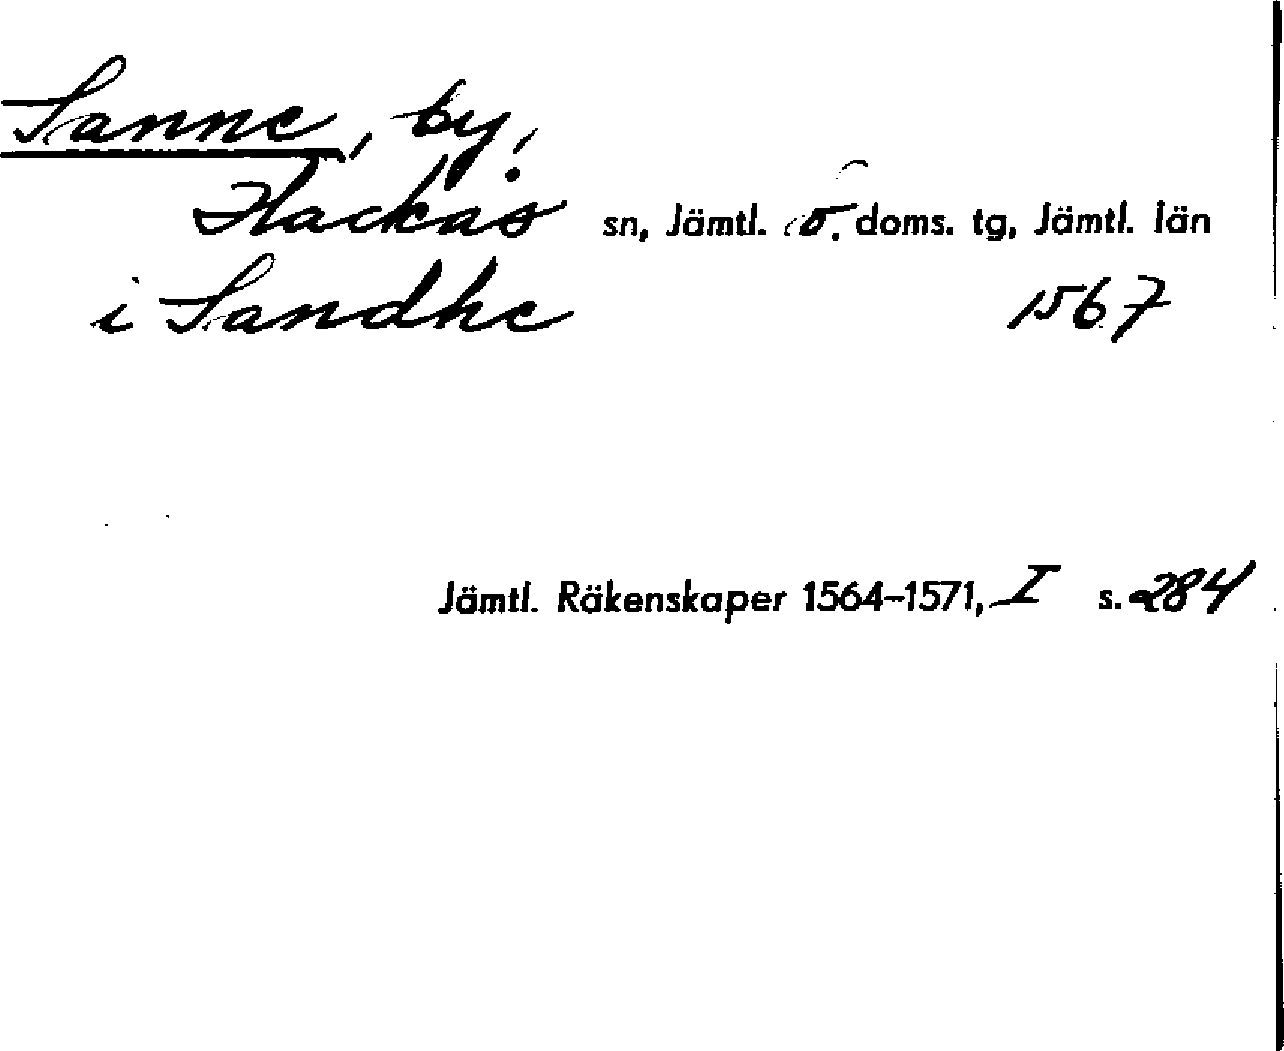 Sanne, by,
Hackås sn, Jämtl. ö. doms. tg, Jämtl. län
i Sandhe 1567
Jämtl. Räkenskaper 1564–1571, I s. 284